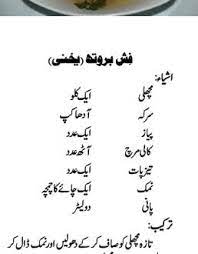 فش بروتھ (یخنی)
اشیاء:
مچھلی ایک کلو
سرکہ آدھا کپ
پیاز ایک عدد
کالی مرچ آٹھ عدد
تیزپات ایک عدد
نمک ایک چائے کا چمچہ
پانی دو لیٹر
ترکیب:
تازہ مچھلی کو صاف کر کے دھولیں اور نمک ڈال کر